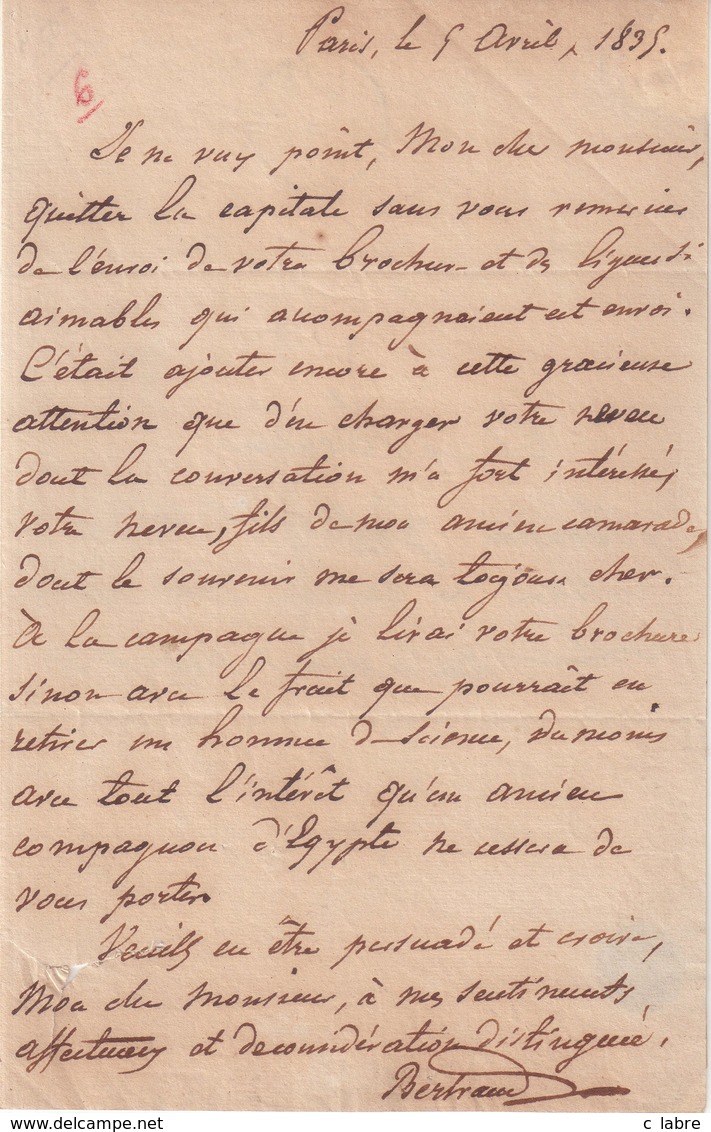 Paris, le 5 Avril 1835.
6
Je ne veux point, Mon cher monsieur,
quitter la capitale sans vous remercier
de l'envoi de votre brochure et des lignes si
aimables qui accompagnaient cet envoi.
C'était ajouter encore à cette gracieuse
attention que d'en charger votre neveu
dont la conversation m'a fort intéressé,
votre neveu, fils de mon ancien camarade,
dont le souvenir me sera toujours cher.
À la campagne je lirai votre brochure
sinon avec le fruit que pourrait en
retirer un homme de science, du moins
avec tout l'intérêt qu'un ancien
compagnon d'Egypte ne cessera de
vous porter.
Veuillez en être persuadé et croire,
Mon cher Monsieur, à mes sentiments
affectueux et de considération distinguée.
Bertrand
c labre